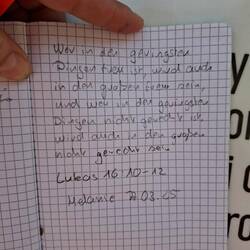 Wer in den geringsten
Dingen treu ist, wird auch
in den großen treu sein,
und wer in den geringsten
Dingen nicht gerecht ist
wird auch in den großen
nicht gerecht sein
Lukas 16:10-12
Melanie 03.25